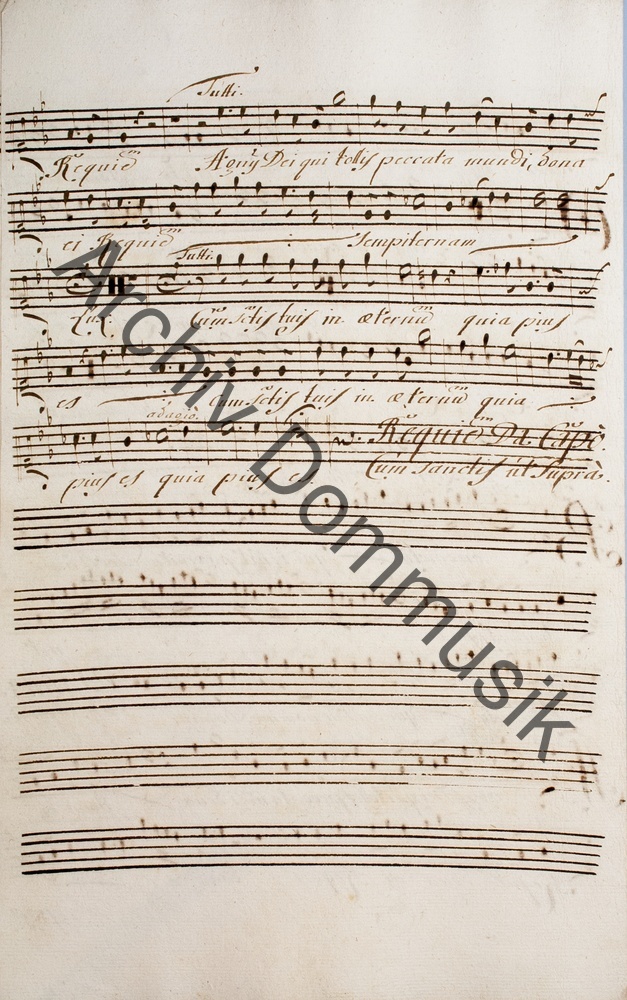 Tutti.
Requiem Agnus Dei qui tollis peccata mundi, dona
ei Requiem Sempiternam
Tutti.
Lux. Cum Sctis tuis in æternum quia pius
es Cum Sctis tuis in æternum quia
adagio
Requiem Da Capo.
pius es quia pius es. Cum Sanctis ut Suprà.
Archiv Dommusik